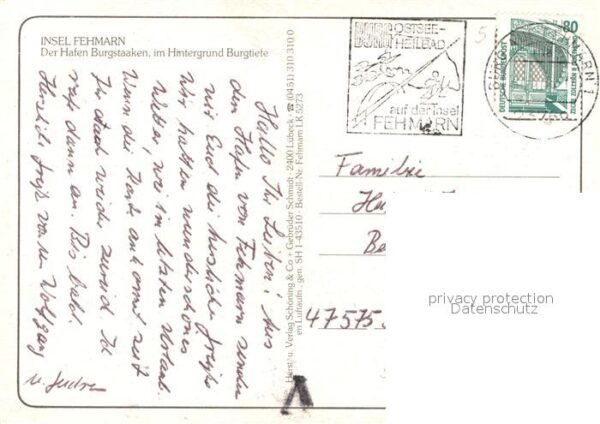 INSEL FEHMARN
Der Hafen Burgstaaken, im Hintergrund Burgtiefe
Hallo Ihr Lieben! Aus
dem Hafen von Fehmarn senden
wir Euch die herzliche Grüße
Wir hatten wunderschönes
Wetter, wie im letzten Urlaub.
Wenn die Karte ankommt seit
Ihr auch wieder zurück Ich
ruf dann an. Bis bald.
Herzliche Grüße von Wolfgang
u.
Herst. u. Verlag Schöning & Co + Gebrüder Schmidt · 2400 Lübeck · ☎ (0451) 310 310 0
en Luftaufn. · gen. SH 1-43510 · Bestell-Nr. Fehmarn LK 5273
BURG OSTSEE-
BURG HEILBAD
auf der Insel
FEHMARN
80
DEUTSCHE BUNDESPOST
Familie
47575
privacy protection
Datenschutz